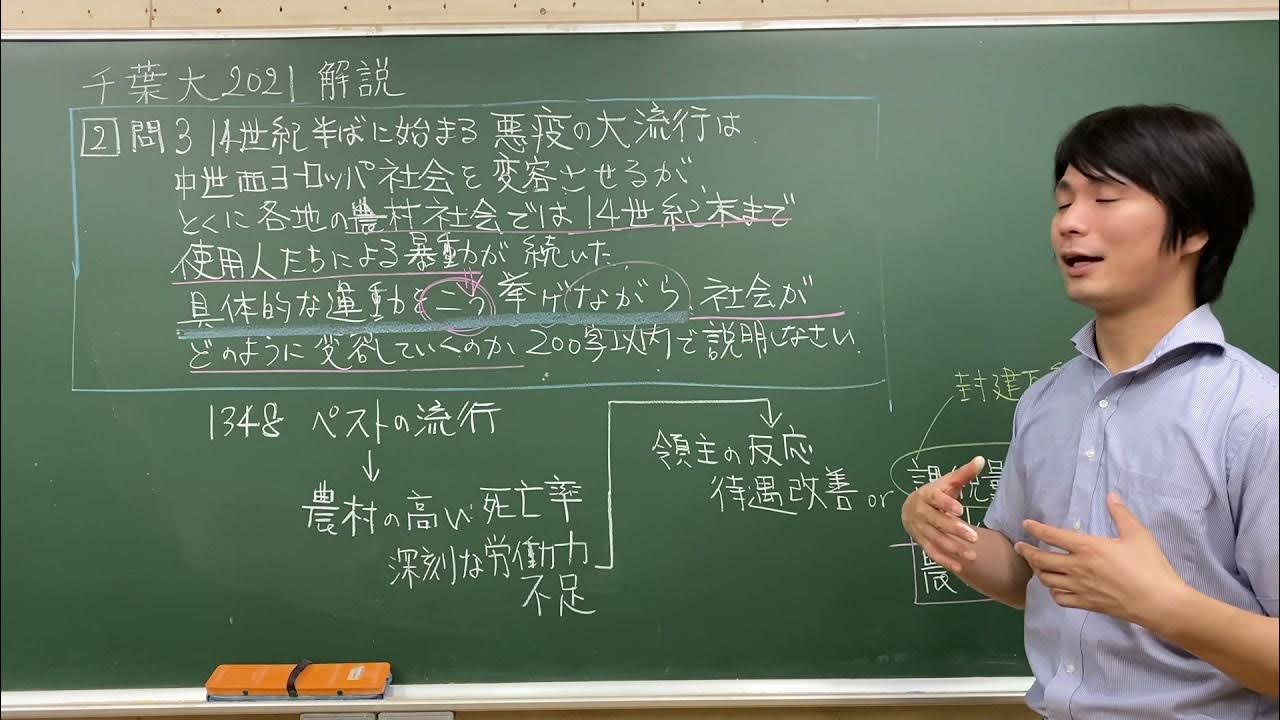 千葉大2021 解説
2 問3 14世紀半ばに始まる悪疫の大流行は
中世西ヨーロッパ社会を変容させるが、
とくに各地の農村社会では14世紀末まで
使用人たちによる暴動が続いた
具体的な運動を二つ挙げながら、社会が
どのように変容していくのか、200字以内で説明しなさい.
1348 ペストの流行
↓
農村の高い死亡率
深刻な労働力
不足
領主の反応
待遇改善 or
封建
課税
農